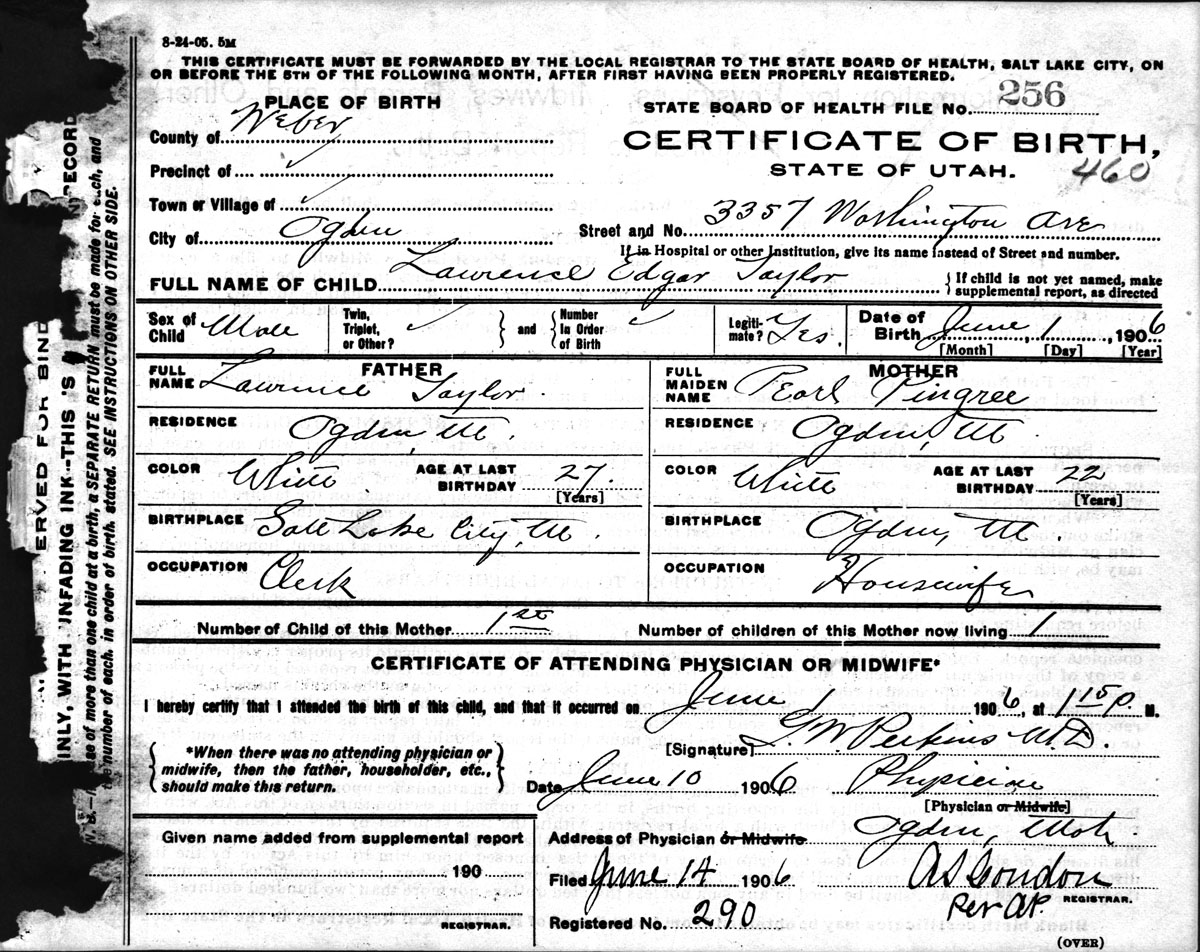 8-24-05. 5M
THIS CERTIFICATE MUST BE FORWARDED BY THE LOCAL REGISTRAR TO THE STATE BOARD OF HEALTH, SALT LAKE CITY, ON
OR BEFORE THE 5TH OF THE FOLLOWING MONTH, AFTER FIRST HAVING BEEN PROPERLY REGISTERED.
PLACE OF BIRTH
STATE BOARD OF HEALTH FILE No. 256
County of Weber
CERTIFICATE OF BIRTH,
Precinct of
STATE OF UTAH.
460
Town or Village of
City of Ogden
Street and No. 3357 Washington Ave
If in Hospital or other Institution, give its name instead of Street and number.
FULL NAME OF CHILD Lawrence Edgar Taylor
If child is not yet named, make
supplemental report, as directed
Sex of Child Male
Twin, Triplet, or Other?
and
Number in Order of Birth
Legiti-mate? Yes.
Date of Birth June 1, 1906
[Month] [Day] [Year]
FATHER
FULL NAME Lawrence Taylor
RESIDENCE Ogden, Ut.
COLOR White
AGE AT LAST BIRTHDAY 27.
[Years]
BIRTHPLACE Salt Lake City, Ut.
OCCUPATION Clerk
MOTHER
FULL MAIDEN NAME Pearl Pingree
RESIDENCE Ogden, Ut.
COLOR White
AGE AT LAST BIRTHDAY 22
[Years]
BIRTHPLACE Ogden, Ut.
OCCUPATION Housewife
Number of Child of this Mother 1st
Number of children of this Mother now living 1
CERTIFICATE OF ATTENDING PHYSICIAN OR MIDWIFE*
I hereby certify that I attended the birth of this child, and that it occurred on June 1 1906, at 1:50 P. M.
*When there was no attending physician or
midwife, then the father, householder, etc.,
should make this return.
[Signature] G. W Perkins M.D.
Date June 10 1906 Physician
[Physician or Midwife]
Given name added from supplemental report
190
REGISTRAR.
Address of Physician or Midwife Ogden, Utah.
Filed June 14 1906
Registered No. 290
REGISTRAR.
Per AP.
(OVER)
ERVED FOR BIND
INLY WITH INFADING INK--THIS 'S
RECORD
se of more than one child at a birth, a SEPARATE RETURN must be made for each, and
the number of each, in order of birth stated. SEE INSTRUCTIONS ON OTHER SIDE.